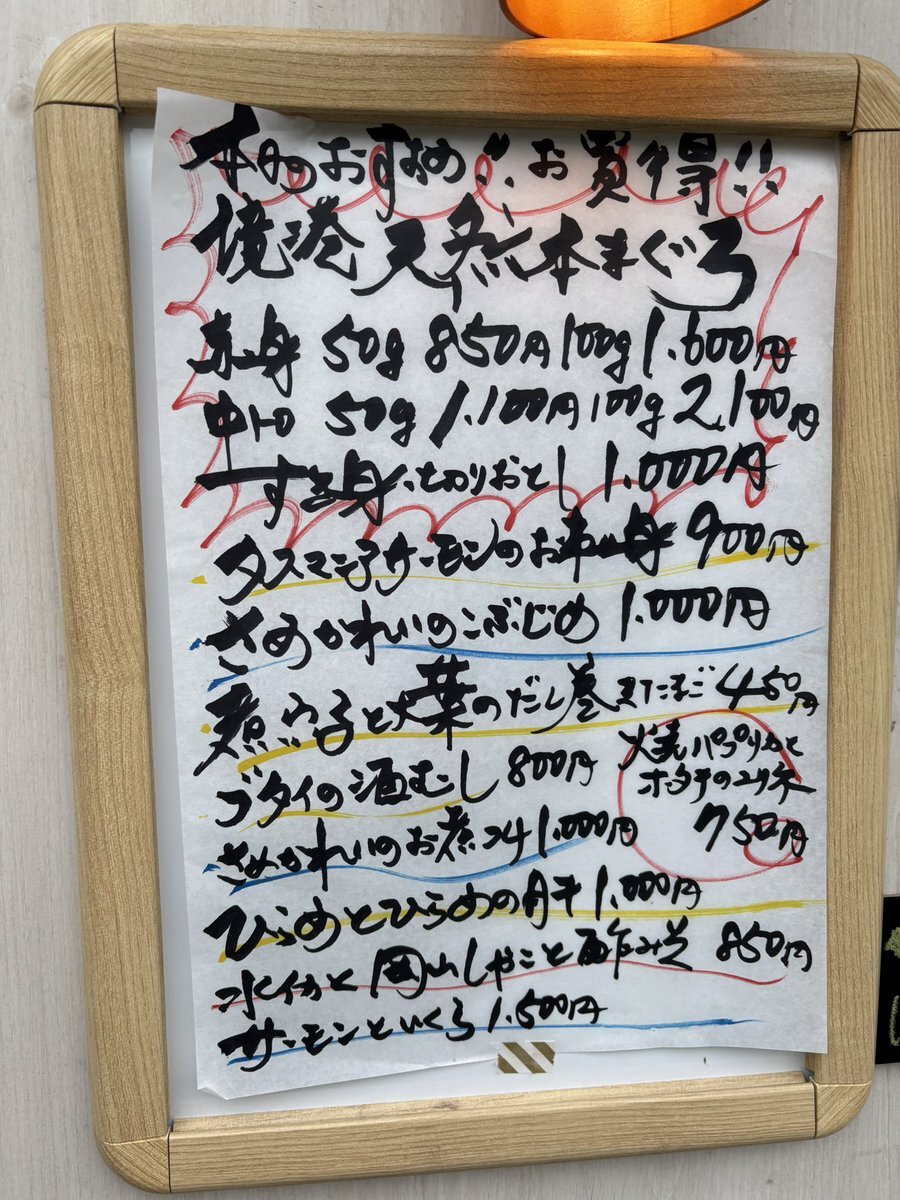 本日のおすすめ!! お買得!!
境港 天然本まぐろ
赤身 50g 850円 100g 1.600円
中トロ 50g 1.100円 100g 2.100円
すき身、切りおとし 1.000円
タスマニアサーモンのお刺身 900円
さめかれいのこぶじめ 1.000円
煮穴子と大葉のだし巻きたまご 450円
火焼パプリカと
ホタテのマリネ
750円
ブダイの酒むし 800円
さめかれいのお煮つけ 1.000円
ひらめとひらめの肝 1.000円
水イカと岡山しゃこと酢みそ 850円
サーモンといくら 1.500円